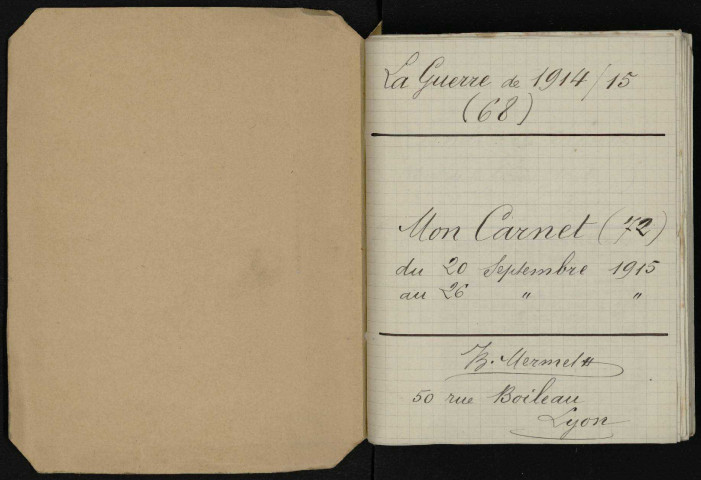 La Guerre de 1914/15
(68)
Mon Carnet (72)
du 20 Septembre 1915
au 26 " "
B. Mermet
50 rue Boileau
Lyon